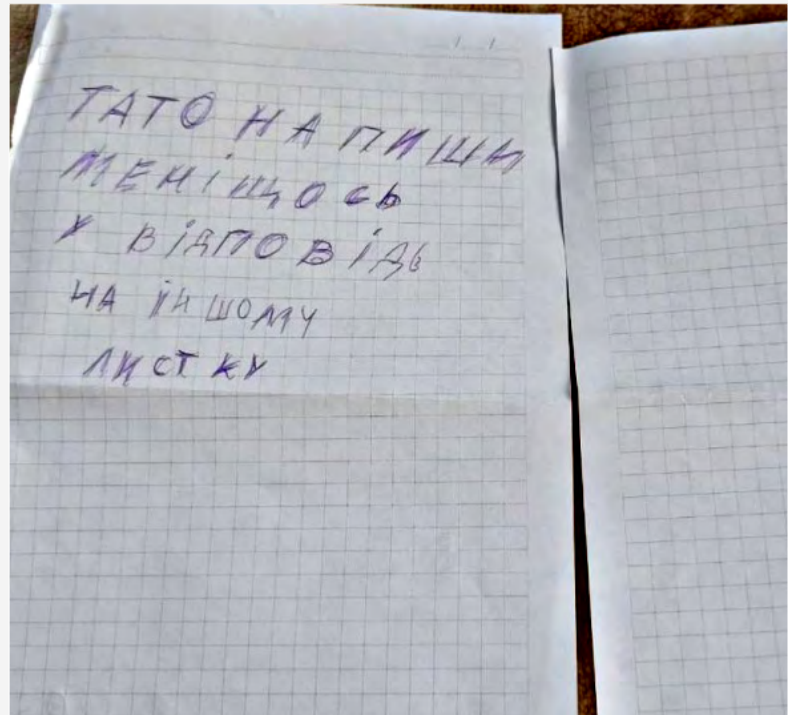 ТАТО НАПИШИ
МЕНІ ЩОСЬ
У ВІДПОВІДЬ
НА ІНШОМУ
ЛИСТКУ